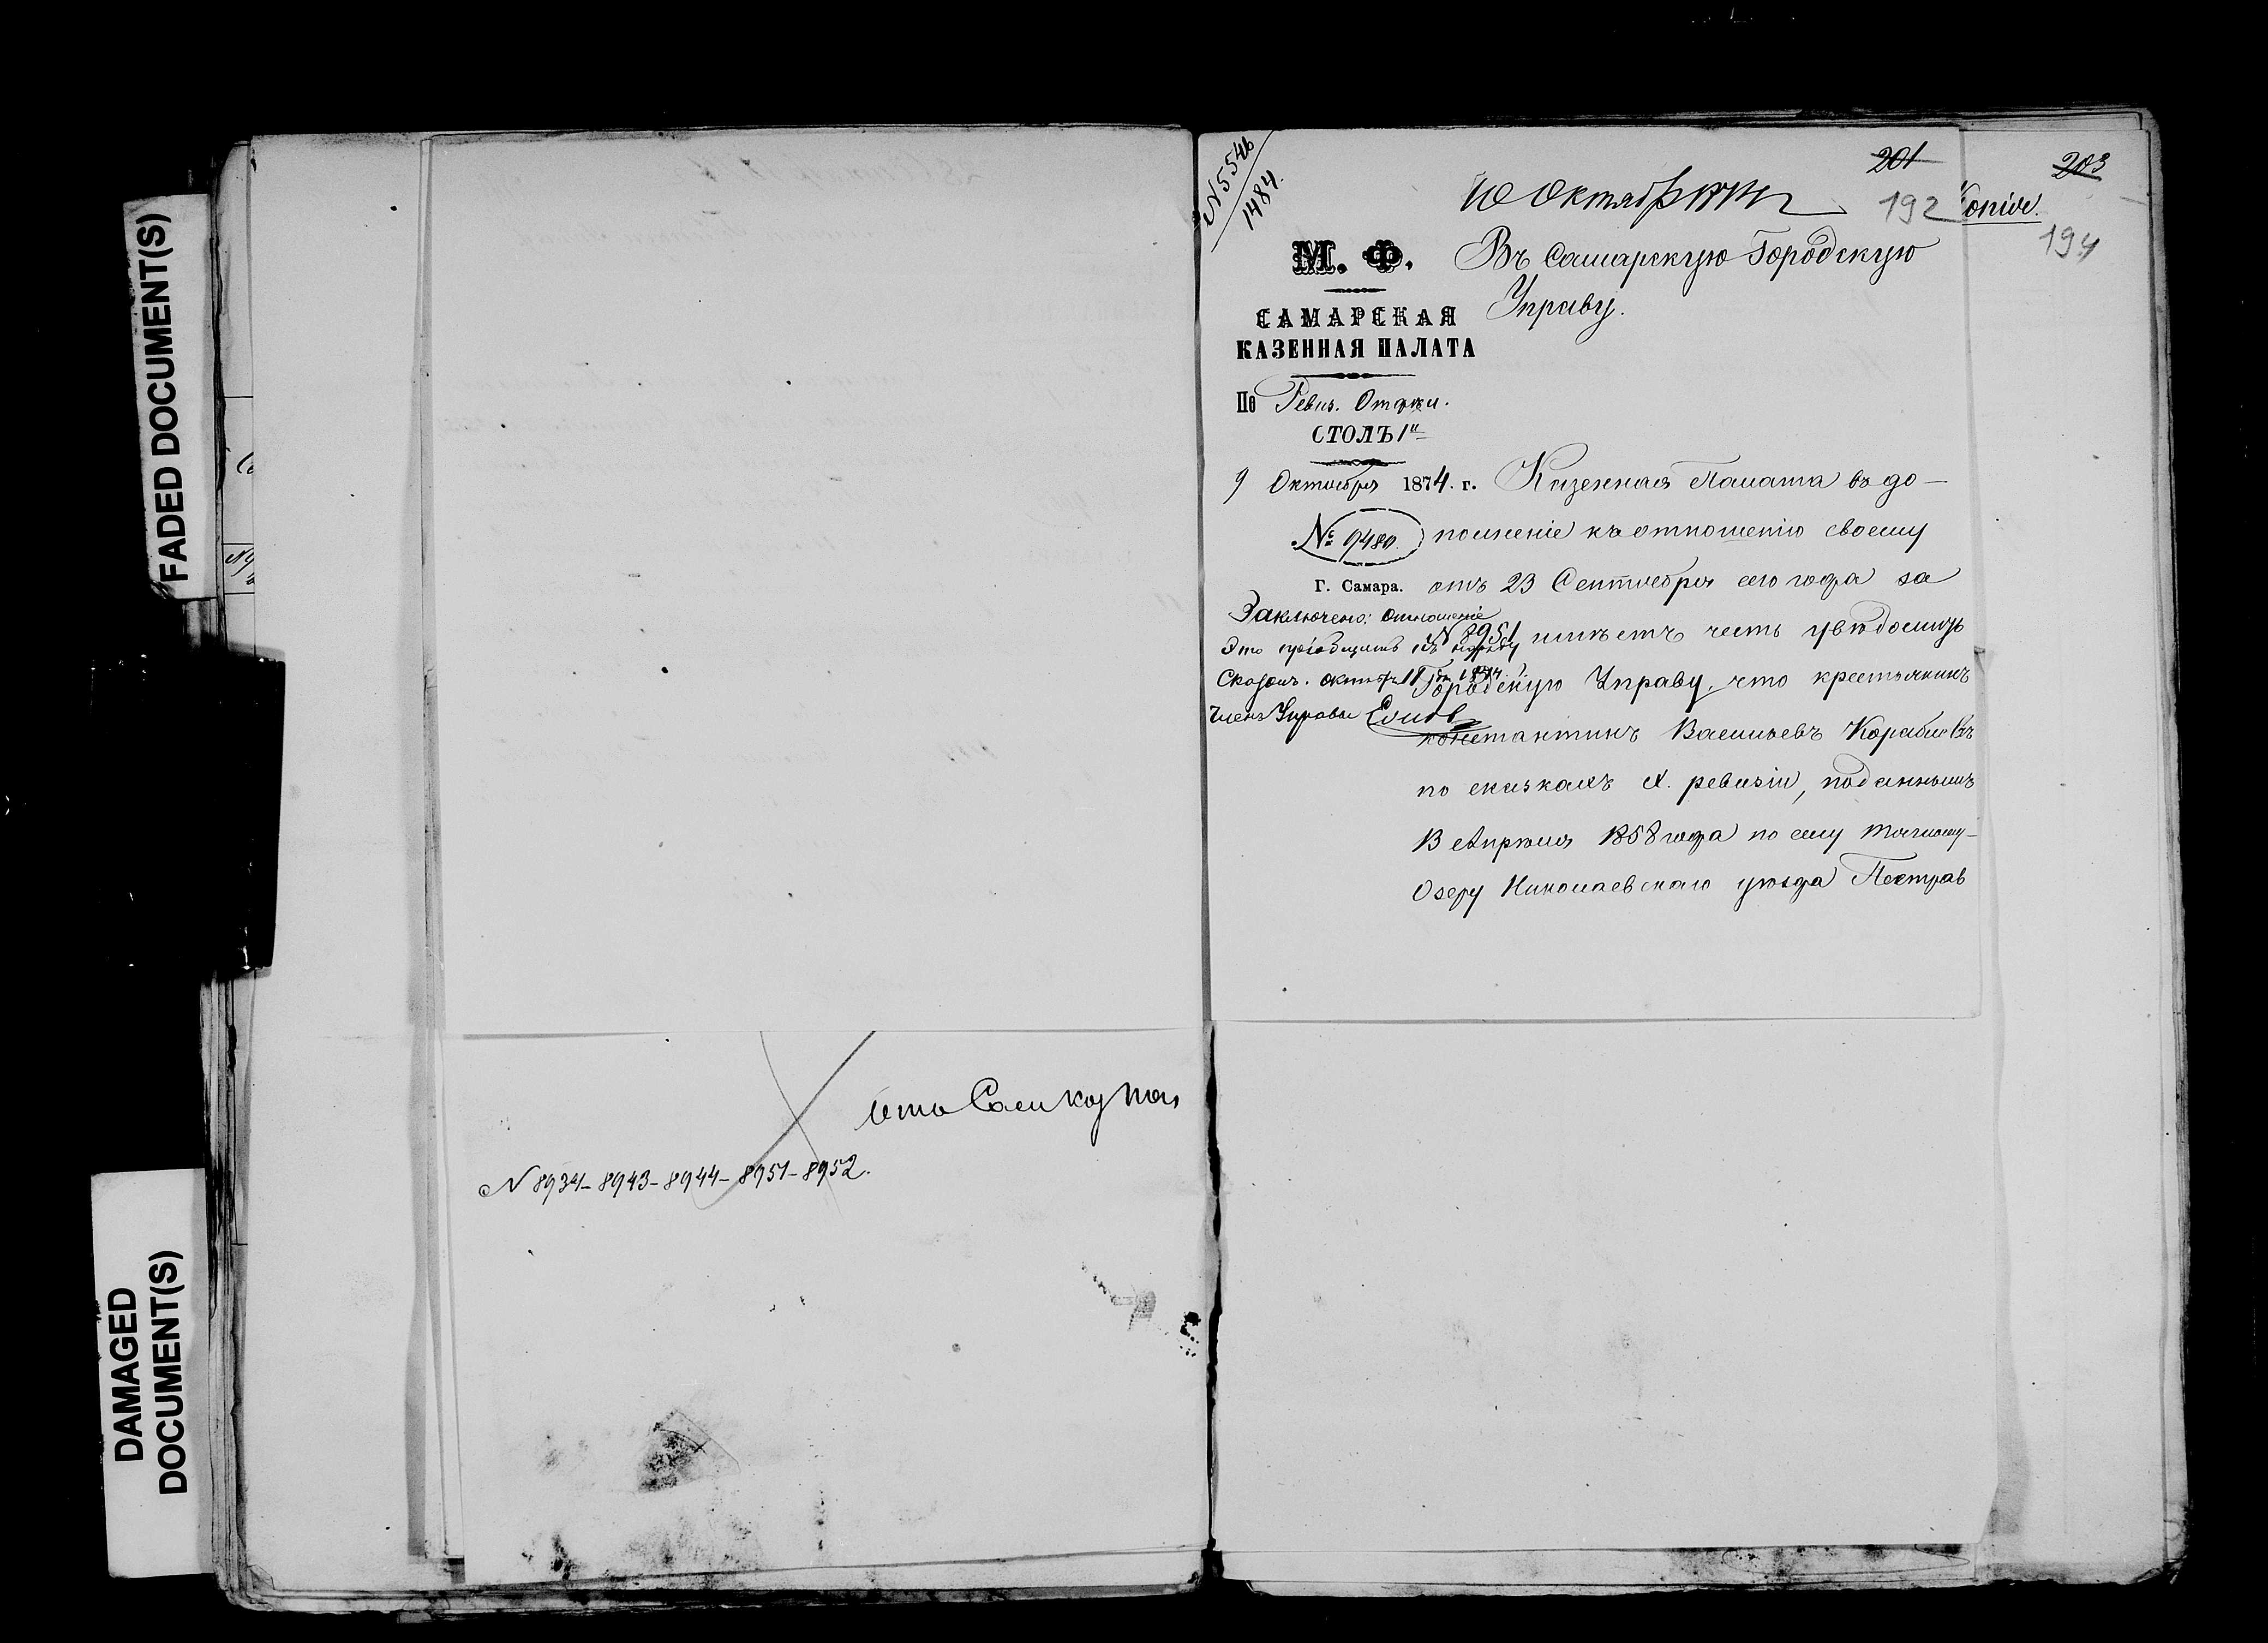 FADED DOCUMENT(S)
DAMAGED
DOCUMENT(S)
N 8934- 8943- 8944- 8951- 8952.
N 5546
1484.
201
192
203
194
Копія.
10 Октября 1874 г
Въ Самарскую Городскую
Управу.
М. Ф.
САМАРСКАЯ
КАЗЕННАЯ ПАЛАТА
По Ревиз. Отдѣл.
СТОЛЪ 1й
9 Октября 1874. г.
№ 9480.
Г. Самара.
Заключено: Отношеніе
Это пріобщить къ
Октября 11 дня 1874 г.
Членъ Управы
Казенная Палата въ до-
полненіе къ отношенію своему
отъ 23 Сентября сего года за
N 8951 имѣетъ честь увѣдомить
Городскую Управу, что крестьянинъ
Константинъ Васильевъ
по сказкамъ X. ревизіи, поданнымъ
13 Апрѣля 1858 года по селу
Озеру Николаевскаго уѣзда Пестрав